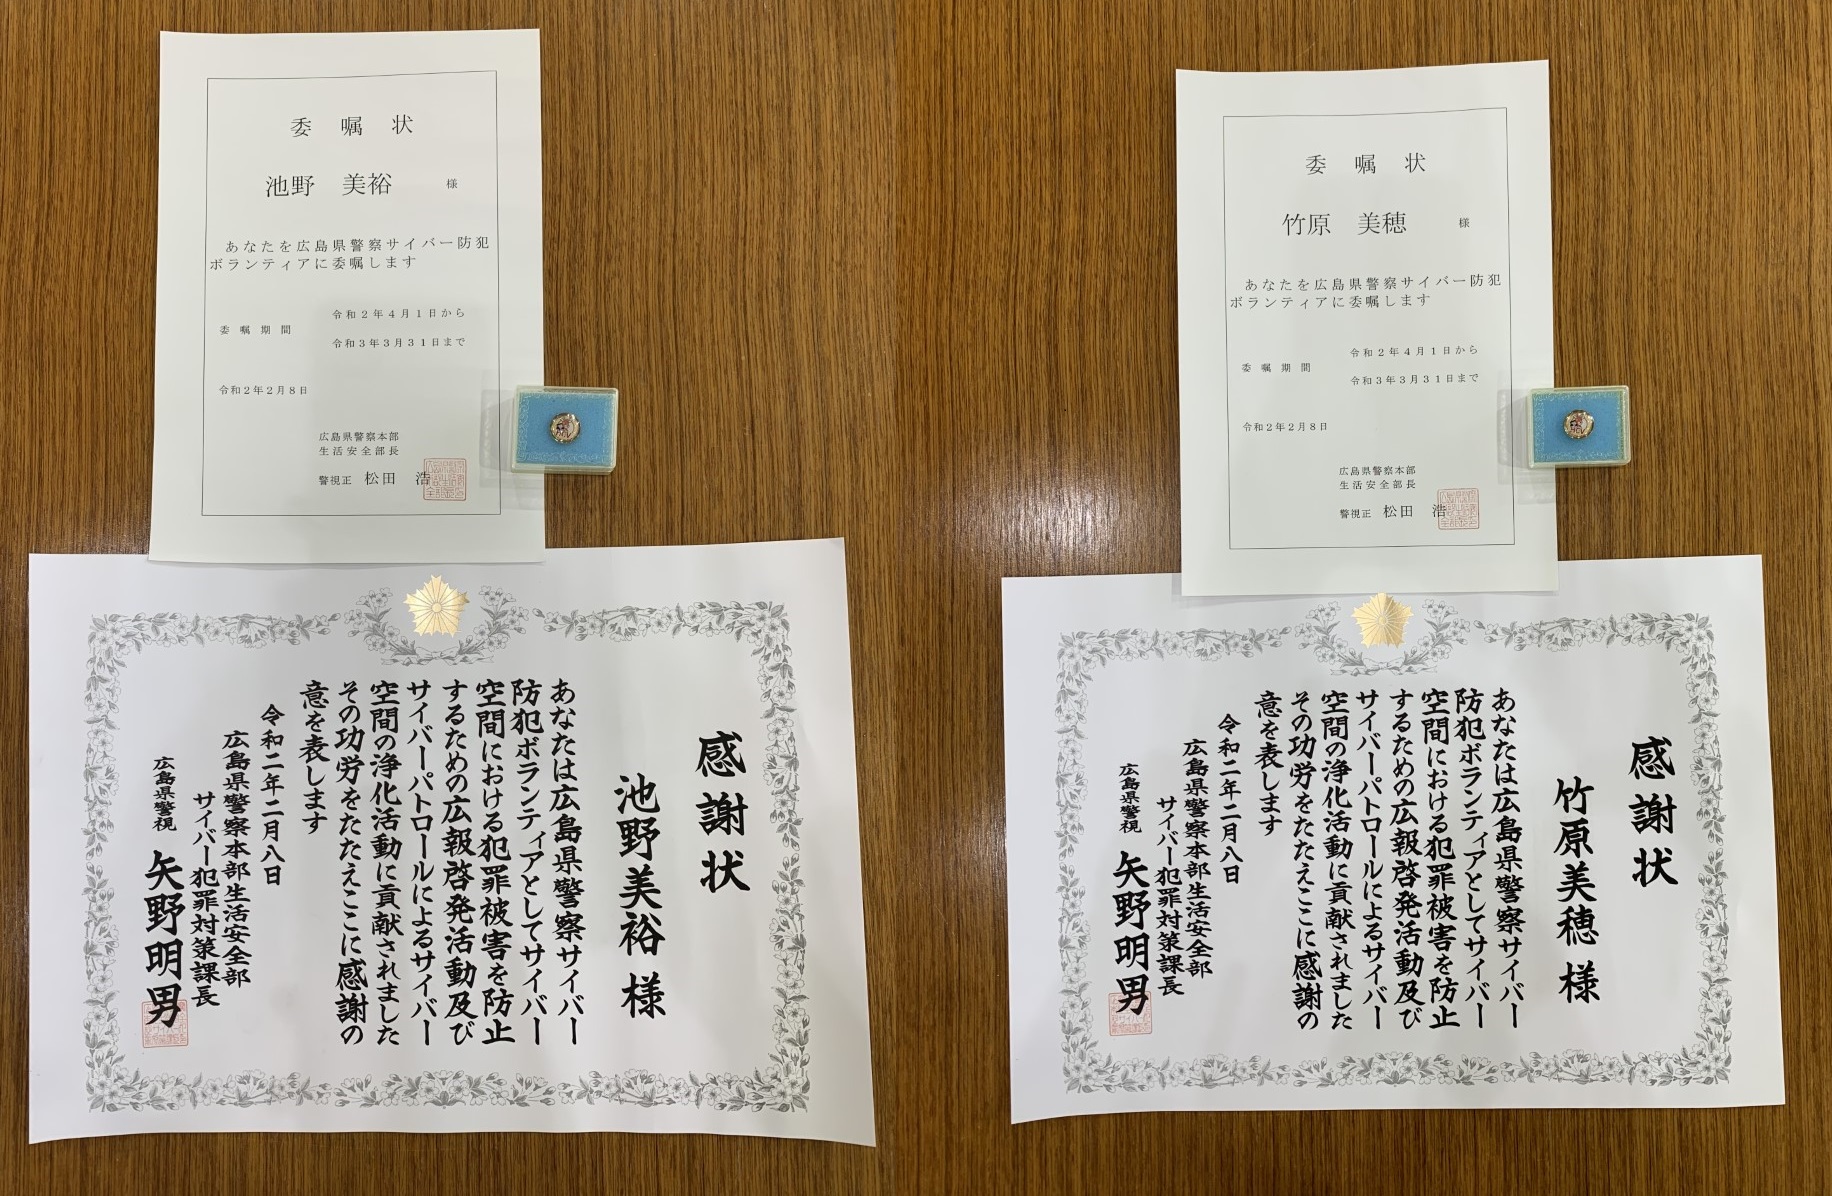 委嘱状
池野　美裕　様
あなたを広島県警察サイバー防犯
ボランティアに委嘱します
令和２年４月１日から
委嘱期間
令和３年３月３１日まで
令和２年２月８日
広島県警察本部
生活安全部長
警視正　松田　浩
感謝状
池野美裕様
あなたは広島県警察サイバー
防犯ボランティアとしてサイバー
空間における犯罪被害を防止
するための広報啓発活動及び
サイバーパトロールによるサイバー
空間の浄化活動に貢献されました
その功労をたたえここに感謝の
意を表します
令和二年二月八日
広島県警察本部生活安全部
サイバー犯罪対策課長
広島県警視　矢野明男
委嘱状
竹原　美穂　様
あなたを広島県警察サイバー防犯
ボランティアに委嘱します
令和２年４月１日から
委嘱期間
令和３年３月３１日まで
令和２年２月８日
広島県警察本部
生活安全部長
警視正　松田　浩
感謝状
竹原美穂様
あなたは広島県警察サイバー
防犯ボランティアとしてサイバー
空間における犯罪被害を防止
するための広報啓発活動及び
サイバーパトロールによるサイバー
空間の浄化活動に貢献されました
その功労をたたえここに感謝の
意を表します
令和二年二月八日
広島県警察本部生活安全部
サイバー犯罪対策課長
広島県警視　矢野明男